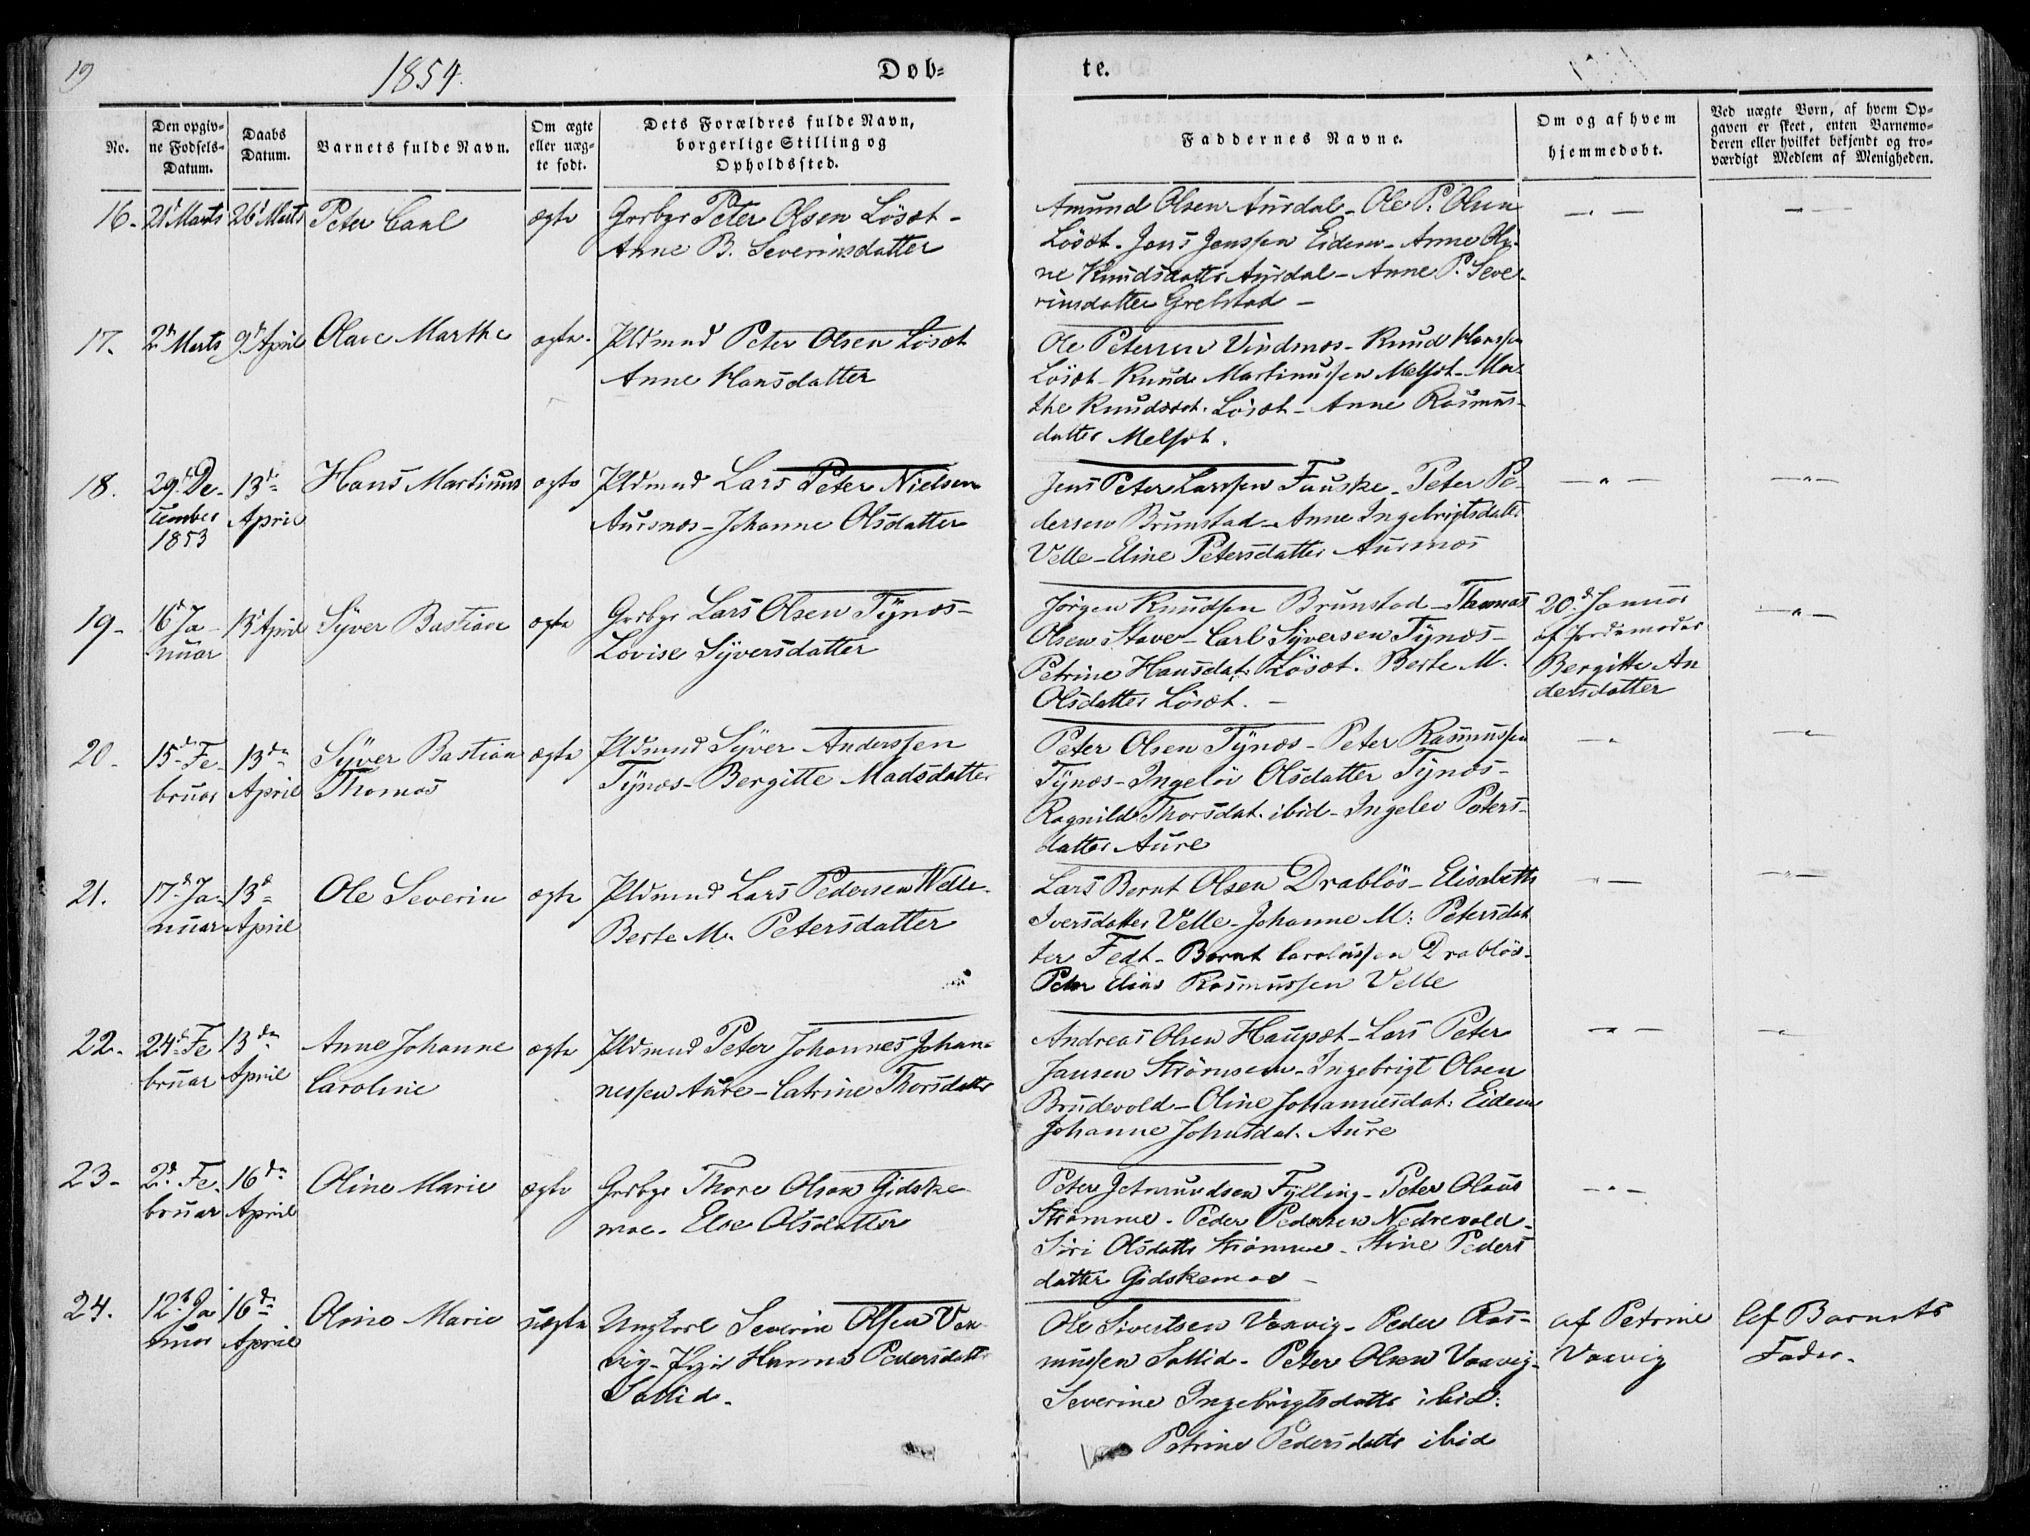 19
1854.
Døb-
te.
No.
Den opgiv-
ne Fødsels-
Datum.
Daabs
Datum.
Barnets fulde Navn.
Om ægte
eller uæg-
te født.
Dets Forældres fulde Navn,
borgerlige Stilling og
Opholdssted.
Faddernes Navne.
Om og af hvem
hjemmedøbt.
Ved uægte Børn, af hvem Op-
gaven er skeet, enten Barnemo-
deren eller hvilket bekjendt og tro-
værdigt Medlem af Menigheden.
16-
21 Marts
26 Marts
Peter Carl
ægte
Grdbgr Peter Olsen Lösæt -
Anne B. Severinsdatter
Amund Olsen Aursdal - Ole P. Olsen
Lösæt - Jens Jenssen Eidem - Anne Oly-
ne Knudsdatter Aursdal - Anne P. Seve-
rinsdatter Grebstad -
17-
2d Marts
9d April
Olave Marthe
ægte
Pldmnd Peter Olsen Lösæt
Anne Hansdatter
Ole Petersen Vindmos - Knud Hanssen
Lösæt - Knud Martinussen Melset - Mar-
the Knudsdat. Lösæt - Anne Rasmus-
datter Melsæt.
18.
29d De-
cember
1853
13d
April
Hans Martinus
ægte
Pldmnd Lars Peter Nielsen
Aursnes - Johanne Olsdatter
Jens Peter Larssen Fauske - Peter Pe-
dersen Brunstad - Anne Ingebrigtsdatter
Velle - Eline Petersdatter Aursnes
19-
16d Ja-
nuar
13d April
Syver Bastian
ægte
Grdbgr Lars Olsen Tynes -
Lovise Syversdatter
Jørgen Knudsen Brunstad - Thomas
Olsen Stave - Carl Syversen Tynes -
Petrine Hansdat. Lösæt. Berte M.
Olsdatter Lösæt. -
20d Januar
af Jordemoder
Bergitte An
dersdatter
20-
15de Fe-
bruar
13de
April
Syver Bastian
Thomas
ægte
Pldmnd Syver Anderssen
Tynes - Bergitte Madsdatter
Peter Olsen Tynes - Peter Rasmussen
Tynes - Ingelöv Olsdatter Tynes -
Ragnild Thorsdat. ibid - Ingelev Peters-
datter Aure
21.
17d Ja-
nuar
13d
April
Ole Severin
ægte
Pldmnd Lars Pedersen Welle -
Berte M. Petersdatter
Lars Bernt Olsen Drablös - Elisabeth
Iversdatter Velle - Johanne M: Petersdat
ter Fedt - Bernt Carolussen Drablös -
Peter Elias Rasmussen Velle
22-
24d Fe
bruar
13de
April
Anne Johanne
Caroline
ægte
Pldmnd Peter Johannes Johan-
nessen Aure - Catrine Thorsdatter
Andreas Olsen Haupset - Lars Peter
Jansen Strömsem - Ingebrigt Olsen
Brudevold - Oline Johannesdat: Eidem
Johanne Johnsdat. Aure
23-
2d Fe-
bruar
16de
April
Oline Marie
ægte
Grdbgr Thore Olsen Gidske-
moe - Else Olsdatter
Peter Jetmundsen Fylling - Peter Olaus
Strömme - Peder Pedersen Nedrevold -
Siri Olsdatter Strömme - Stine Peders
datter Gidskemoe -
24.
12d Ja
nuar
16de
April
Oline Marie
uægte
Ungkarl Severin Olsen Vaa
vig - Pige Hanna Pedersdatter
Sollid -
Ole Sivertsen Vaavig - Peder Ras-
mussen Sollid - Peter Olsen Vaavig -
Severine Ingebrigtsdatter ibid:
Petrine Pedersdatter ibid
af Petrine
Vaavig
af Barnets
Fader.